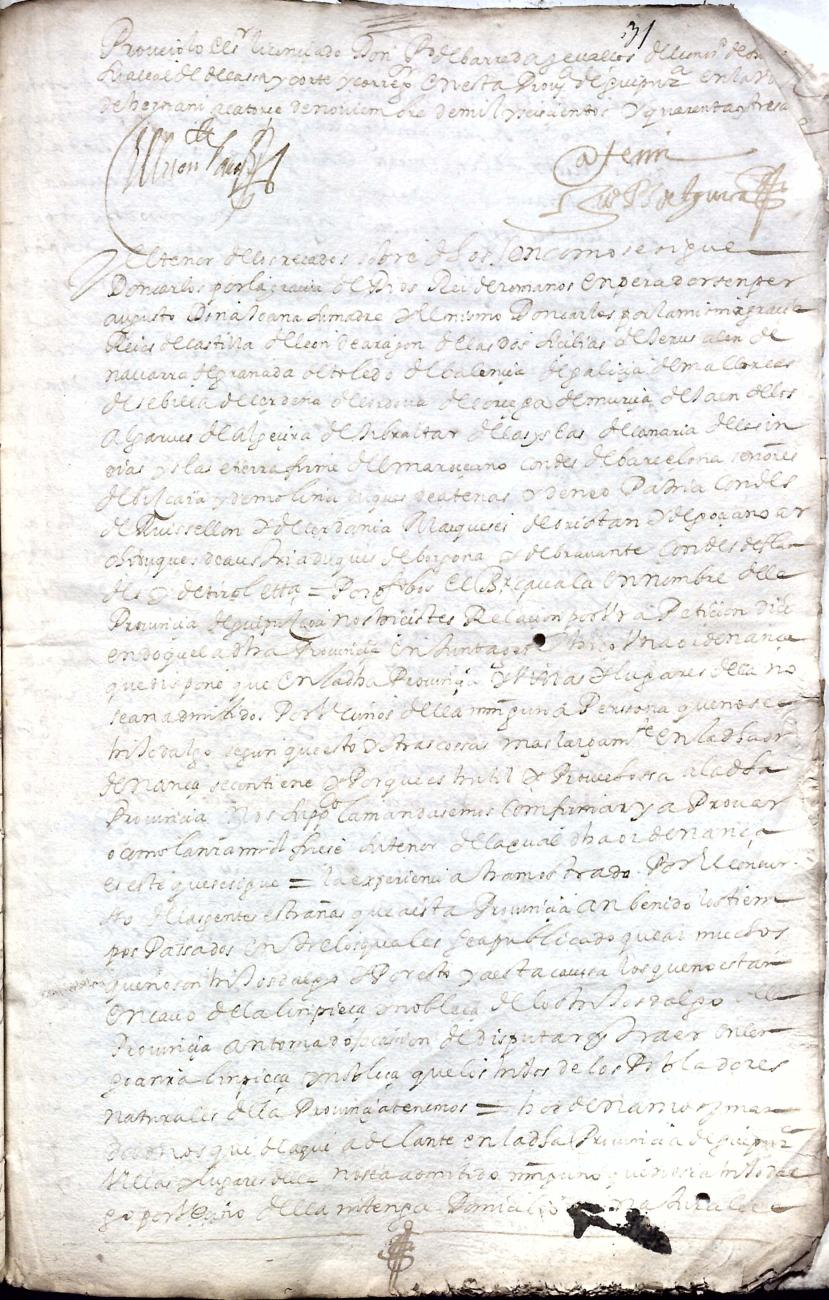 31
Proveiolo el sr licenciado Don P. de barreda ceuallos del consº de su
alcalde de su casa y corte y correg en esta Prov de guipuzª en la Vª
de hernani a catorce de noviembre de mil y seiscientos y quarenta y tres a
Ante mi
El tenor de los recados sobre dhos son como se sigue
Don carlos por la gracia de Dios Rei de romanos enperador senper
augusto Dona Joana su madre y el mismo Don carlos por la misma gracia
Reies de castilla de leon de aragon de las dos sicilias de Jerusalen de
navarra de granada de toledo de balencia de galicia de mallorcas
de sebilla de cerdeña de cordova de corcega de murcia de Jaen de los
Algarves de algecira de gibraltar de las yslas de canaria de las in
dias yslas e tierra firme del mar oceano condes de barcelona señores
de biscaia y de molina duques de atenas y de neo Patria Condes
de Ruisellon y de cerdania Marqueses de oristan y de goçiano ar
chiduques de austria duques de borgona y de bravante condes de fla
des y de tirol etta = Por qto bos el en nombre de la
Provincia de guipuzcoa nos hicistes Relacion por Vra Peticion dici
endo que la dha Provincia en Junta gel hiço Una ordenança
que dispone que en la dha Provincia y Villas y lugares della no
sean admitidos Por Vecinos della ninguna Persona que no sea
hijodalgo segun que esto y otras cossas mas largamte en la dha or
denança se contiene y Porque es hutil y Provechossa a la dha
Provincia Nos suppco la mandasemos comfirmar y a Provar
o como la nra mrd fuese su tenor de la qual dha ordenança
es este que se sigue = la experiencia ha mostrado Por el concur
sso de las gentes estrañas que a esta Provincia an benido los tiem
pos Passados entre los quales se a publicado que ai muchos
que no son hijosdalgo y Por esto y a esta caussa los que no estan
en cavo de la linpieça y nobleça de los hijosdalgo de la
Provincia an tomado ocasion de disputar y traer en len
goa nra linpieça y nobleça que los hijos de los Pobladores
naturales de la Provincia tenemos = hordenamos y man
damos que de aqui adelante en la dha Provincia de guipuzª
Villas y lugares della no sea admitido ninguno que no sea hijodal
go por Vecino della ni tenga Domicilio ni naturaleça